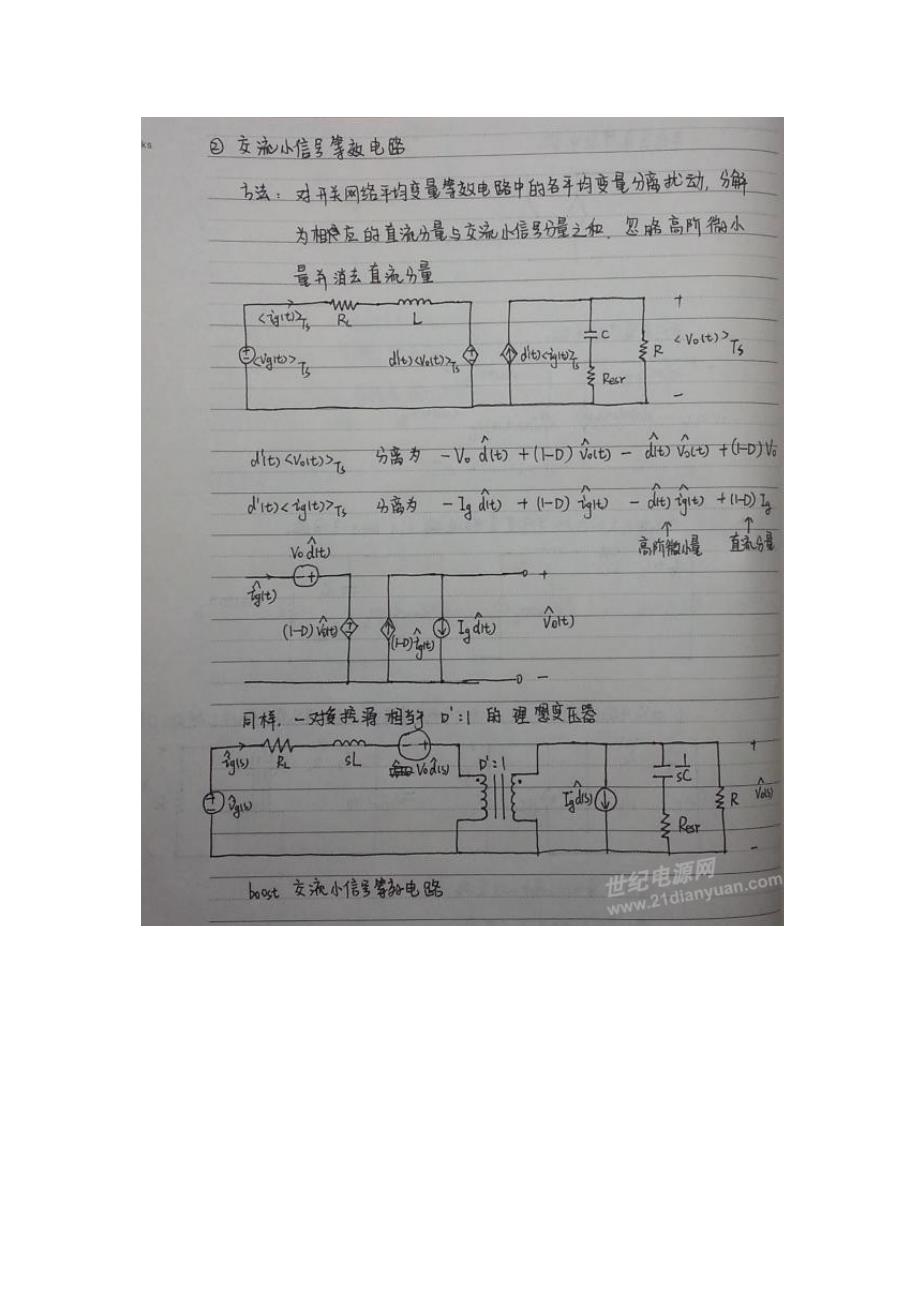 ks
② 交流小信号等效电路
方法：对开关网络平均变量等效电路中的各平均变量分离扰动，分解
为相应的直流分量与交流小信号分量之和，忽略高阶微小
量并消去直流分量
<ig(t)>Ts RL L
<vg(t)>Ts d'(t)<vo(t)>Ts d'(t)<ig(t)>Ts C Resr R + <vo(t)>Ts −
d'(t)<vo(t)>Ts 分离为 −Vo d̂(t) + (1−D) v̂o(t) − d̂(t) v̂o(t) + (1−D)Vo
d'(t)<ig(t)>Ts 分离为 −Ig d̂(t) + (1−D) îg(t) − d̂(t) îg(t) + (1−D) Ig
高阶微小量 直流分量
Vo d̂(t)
îg(t)
(1−D) v̂o(t) (1−D) îg(t) Ig d̂(t) + v̂o(t) −
同样，一对受控源相当于 D':1 的理想变压器
îg(s) RL sL Vo d̂(s) D':1
v̂g(s) Ig d̂(s) 1/sC Resr R + v̂o(s) −
boost 交流小信号等效电路
世纪电源网
www.21dianyuan.com